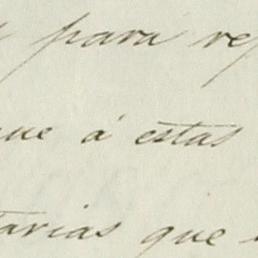 y para rep
que á estas
tarias que